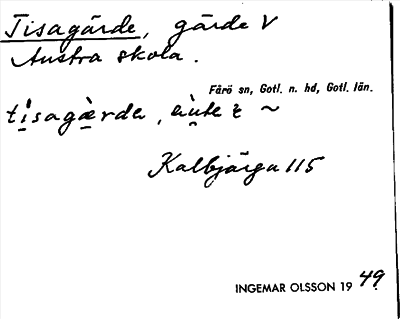 Tisagärde, gärde V
Austra skola.
Fårö sn, Gotl. n. hd, Gotl. län.
tisagærda, ~
Kalbjärga 115
INGEMAR OLSSON 19 49